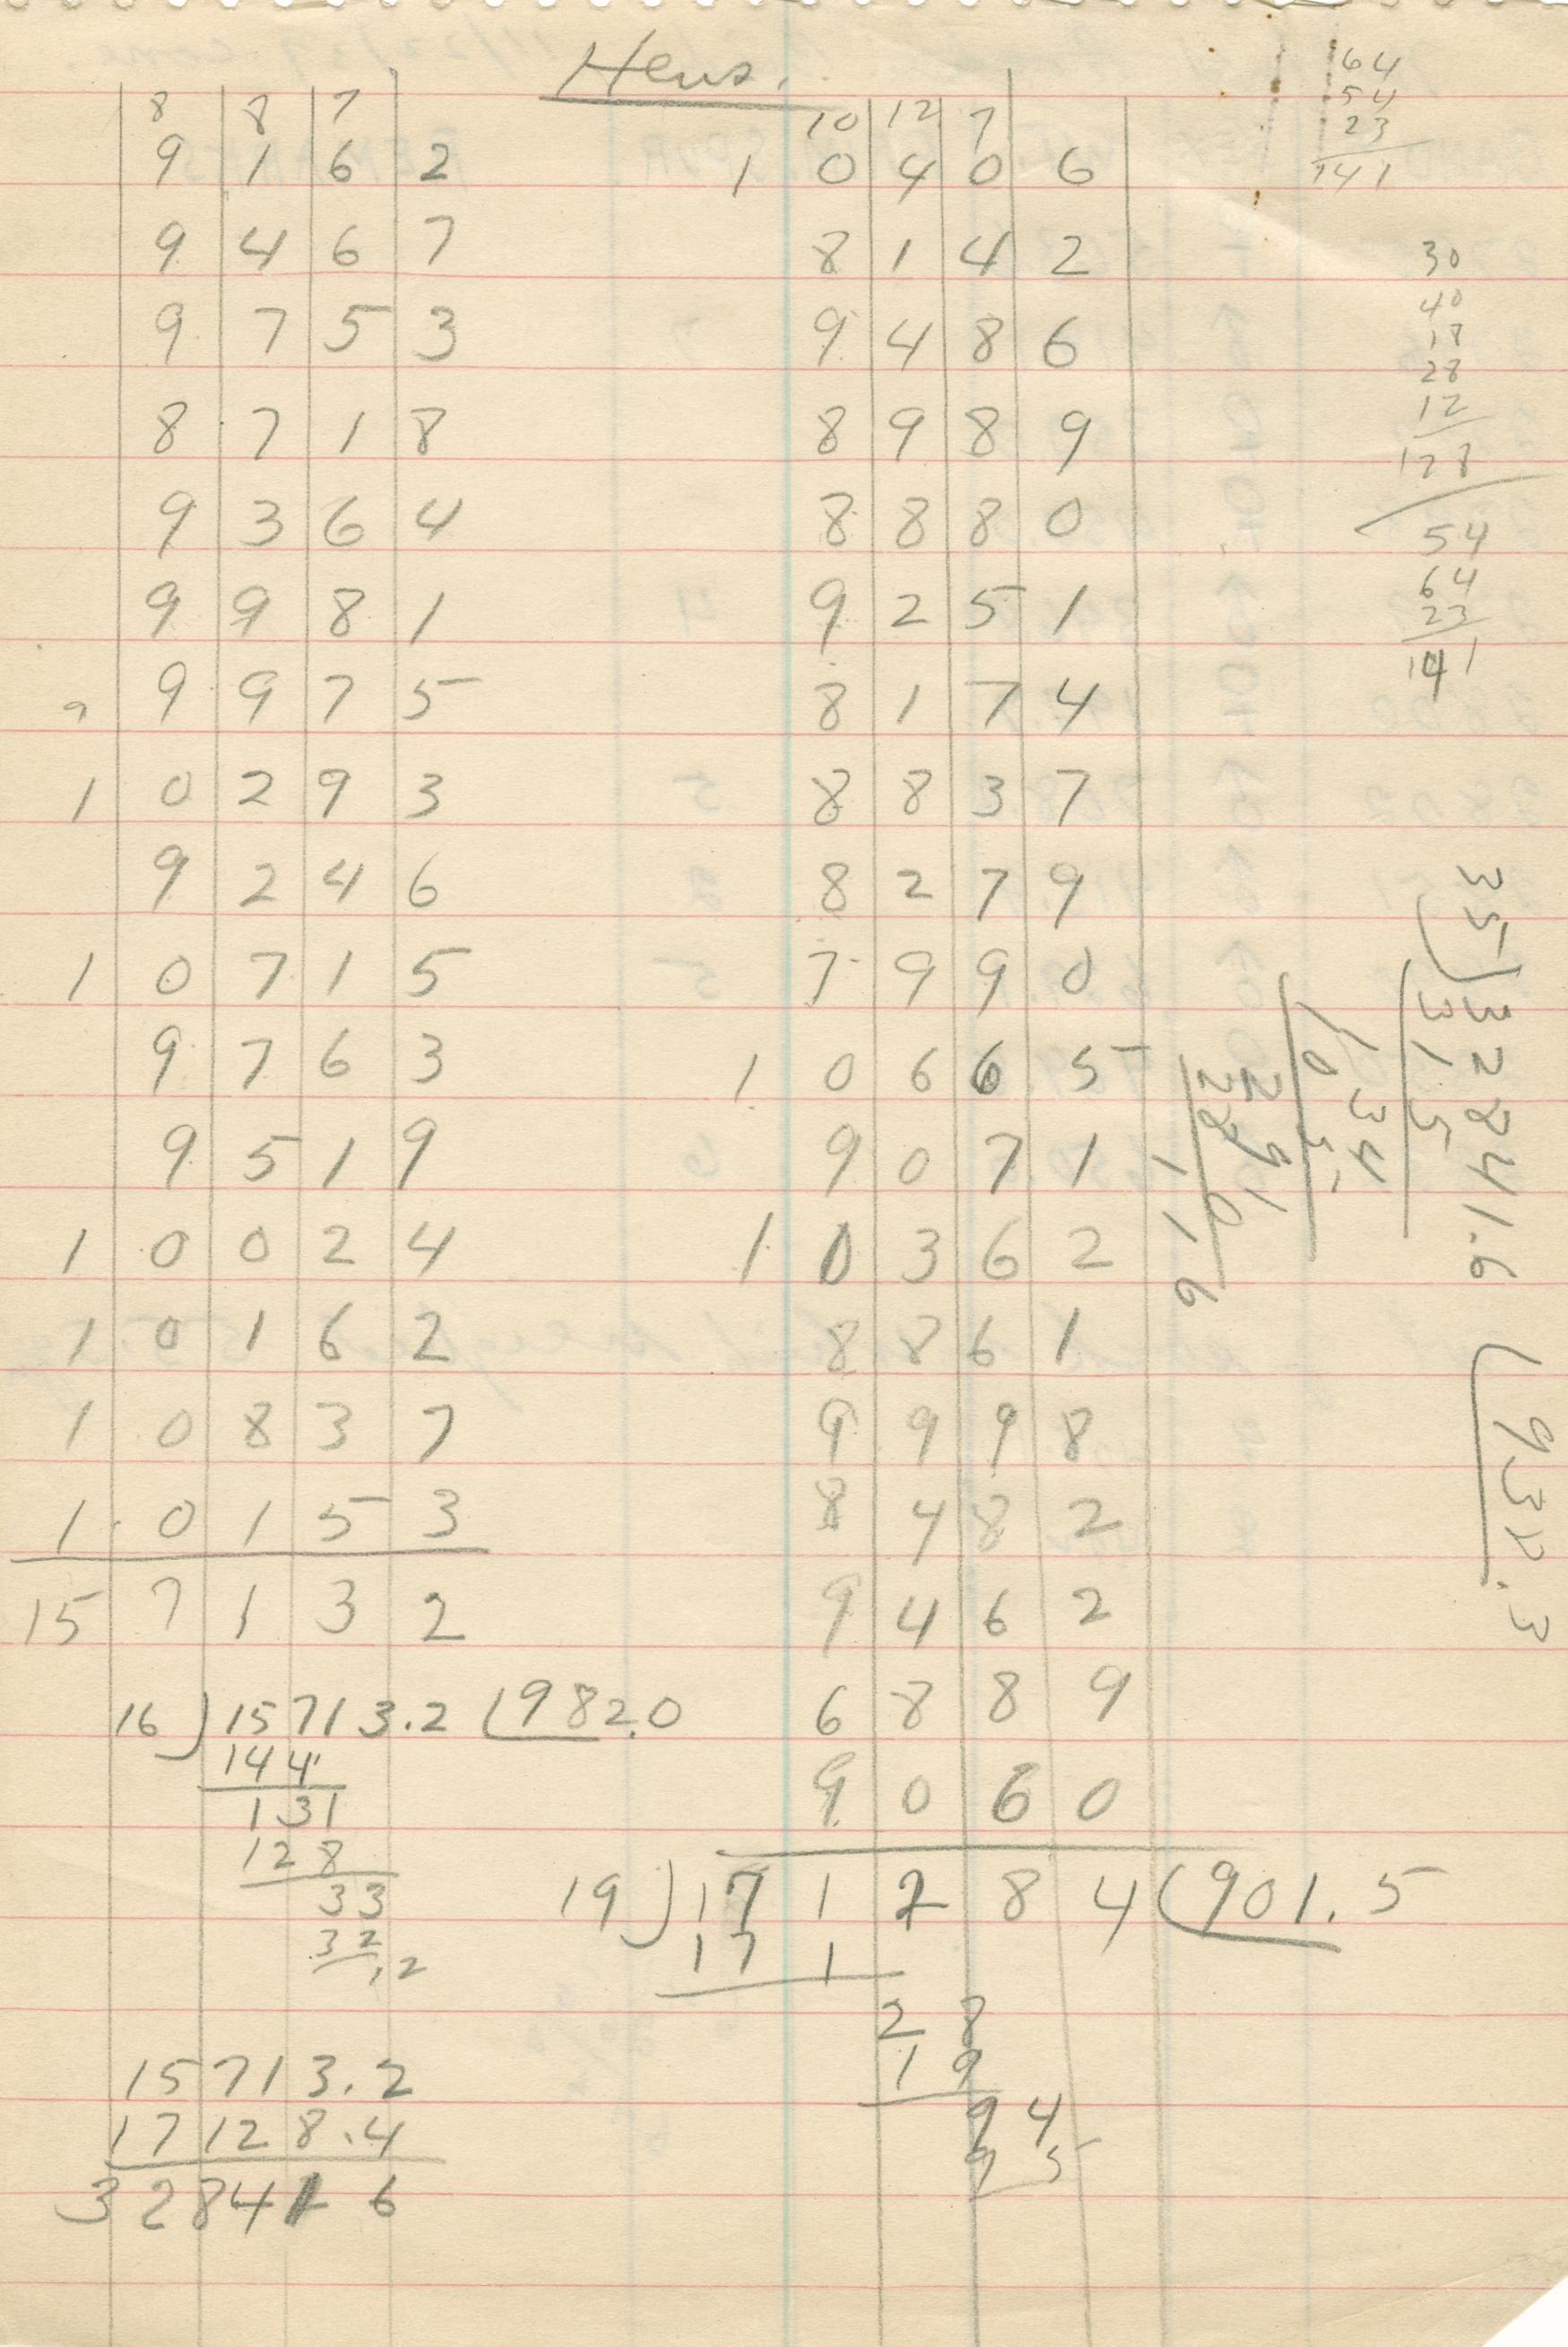 Hens.
8 8 7
9 1 6 2
9 4 6 7
9 7 5 3
8 7 1 8
9 3 6 4
9 9 8 1
9 9 7 5
1 0 2 9 3
9 2 4 6
1 0 7 1 5
9 7 6 3
9 5 1 9
1 0 0 2 4
1 0 1 6 2
1 0 8 3 7
1 0 1 5 3
15 7 1 3 2
16 ) 15713.2 ( 982.0
144
131
128
33
32
.2
15713.2
17128.4
32841 6
10 12 7
1 0 4 0 6
8 1 4 2
9 4 8 6
8 9 8 9
8 8 8 0
9 2 5 1
8 1 7 4
8 8 3 7
8 2 7 9
7 9 9 0
1 0 6 6 5
9 0 7 1
1 0 3 6 2
8 8 6 1
9 9 9 8
8 4 8 2
9 4 6 2
6 8 8 9
9 0 6 0
19 ) 17 1 2 8 4 ( 901.5
17 1
2 8
1 9
9 4
9 5
64
54
23
141
30
40
18
28
12
128
54
64
23
141
35 ) 32841.6 ( 938.3
315
134
105
291
280
116